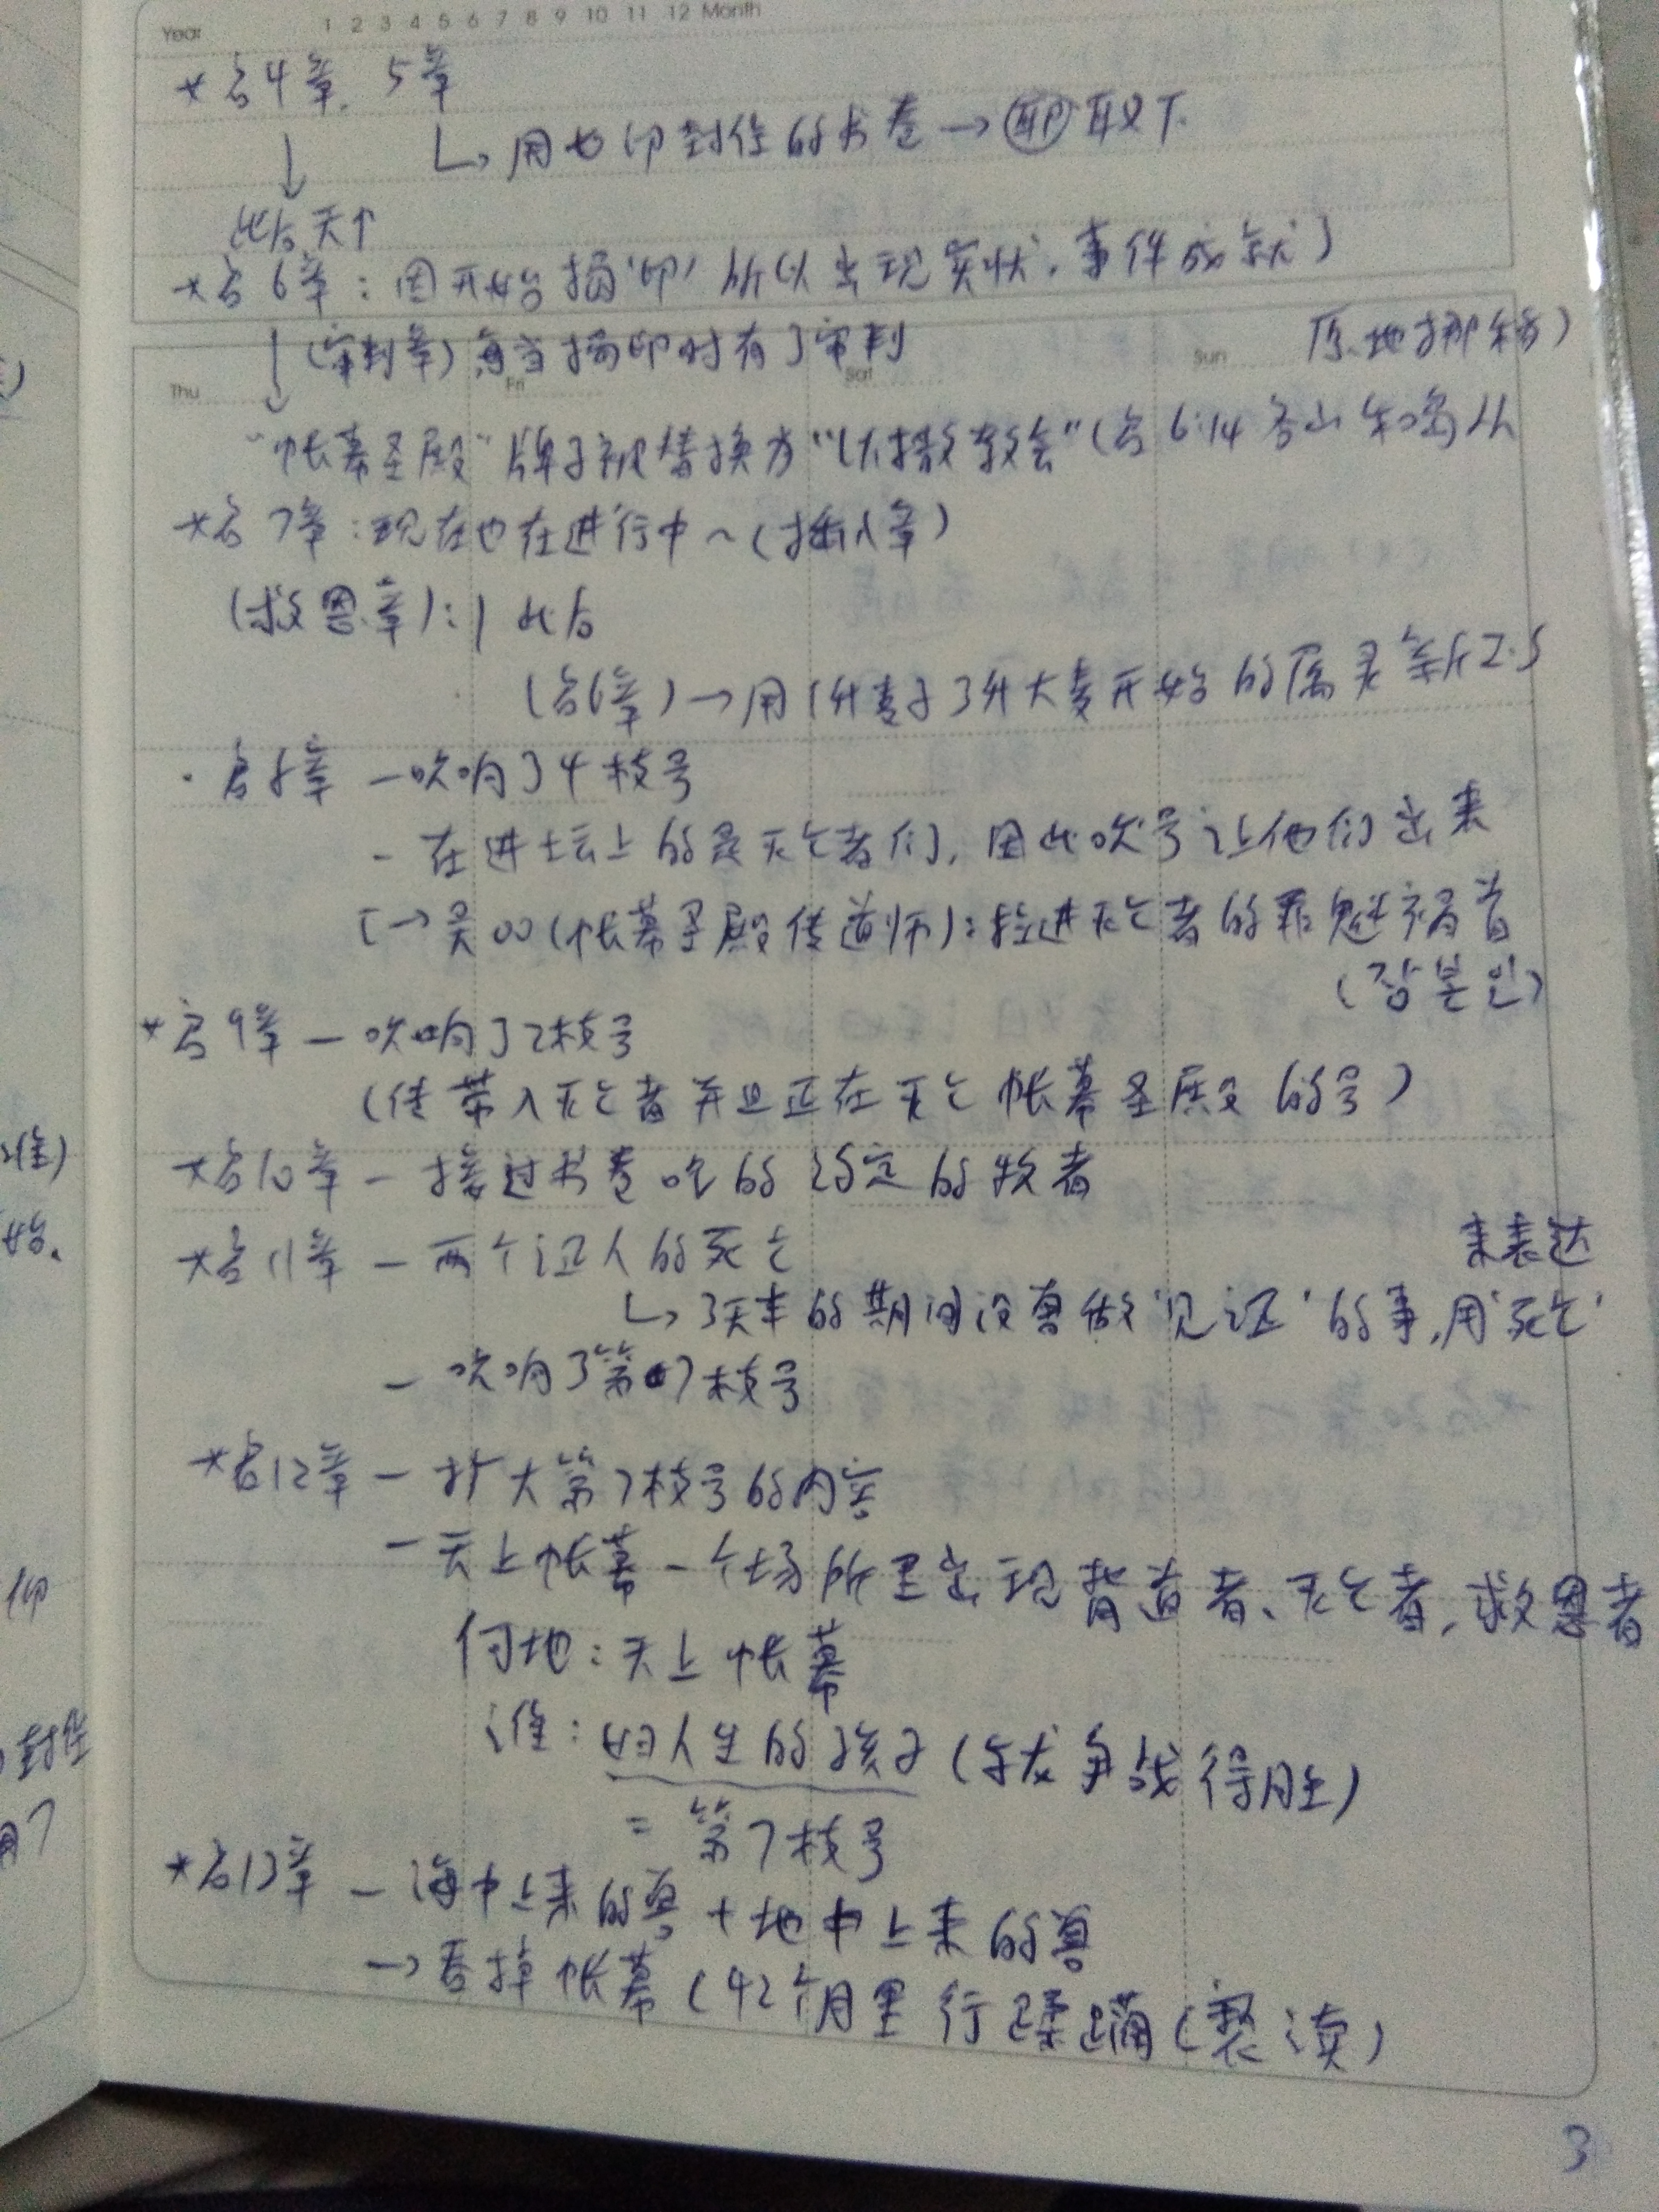 Year 1 2 3 4 5 6 7 8 9 10 11 12 Month
*启4章. 5章
↓ ↳ 用七印封住的书卷 → 耶 取下.
此后天↑
*启6章: 因开始揭'印' 所以出现实状, 事件成就)
↓ (审判章) 每当揭印时有了审判
原地挪移)
Thu Fri Sat Sun
"帐幕圣殿" 牌子被替换为 "以撒教会" (启6:14 各山 和海岛从
*启7章: 现在也在进行中~(插入章)
(救恩章): 1 此后
(启6章) → 用1升麦子3升大麦开始的属灵新
· 启8章 - 吹响了4枝号
- 在进坛上的是灭亡者们, 因此吹号让他们出来
→吴OO(帐幕圣殿传道师): 拉进灭亡者的罪魁祸首
(장본인)
*启9章 - 吹响了2枝号
(传带入灭亡者并且正在灭亡帐幕圣殿的号)
*启10章 - 接过书卷吃的 约定的牧者
*启11章 - 两个证人的死亡
来表达
↳ 3天半的期间没有做'见证'的事, 用'死亡'
- 吹响了第7枝号
*启12章 - 扩大第7枝号的内容
- 天上帐幕一个场所里出现背道者、灭亡者, 救恩者
何地: 天上帐幕
谁: 妇人生的孩子 (与龙争战得胜)
= 第7枝号
*启13章 - 海中上来的兽 + 地中上来的兽
→ 吞掉帐幕 (42个月里 行蹂躏(亵渎)
3